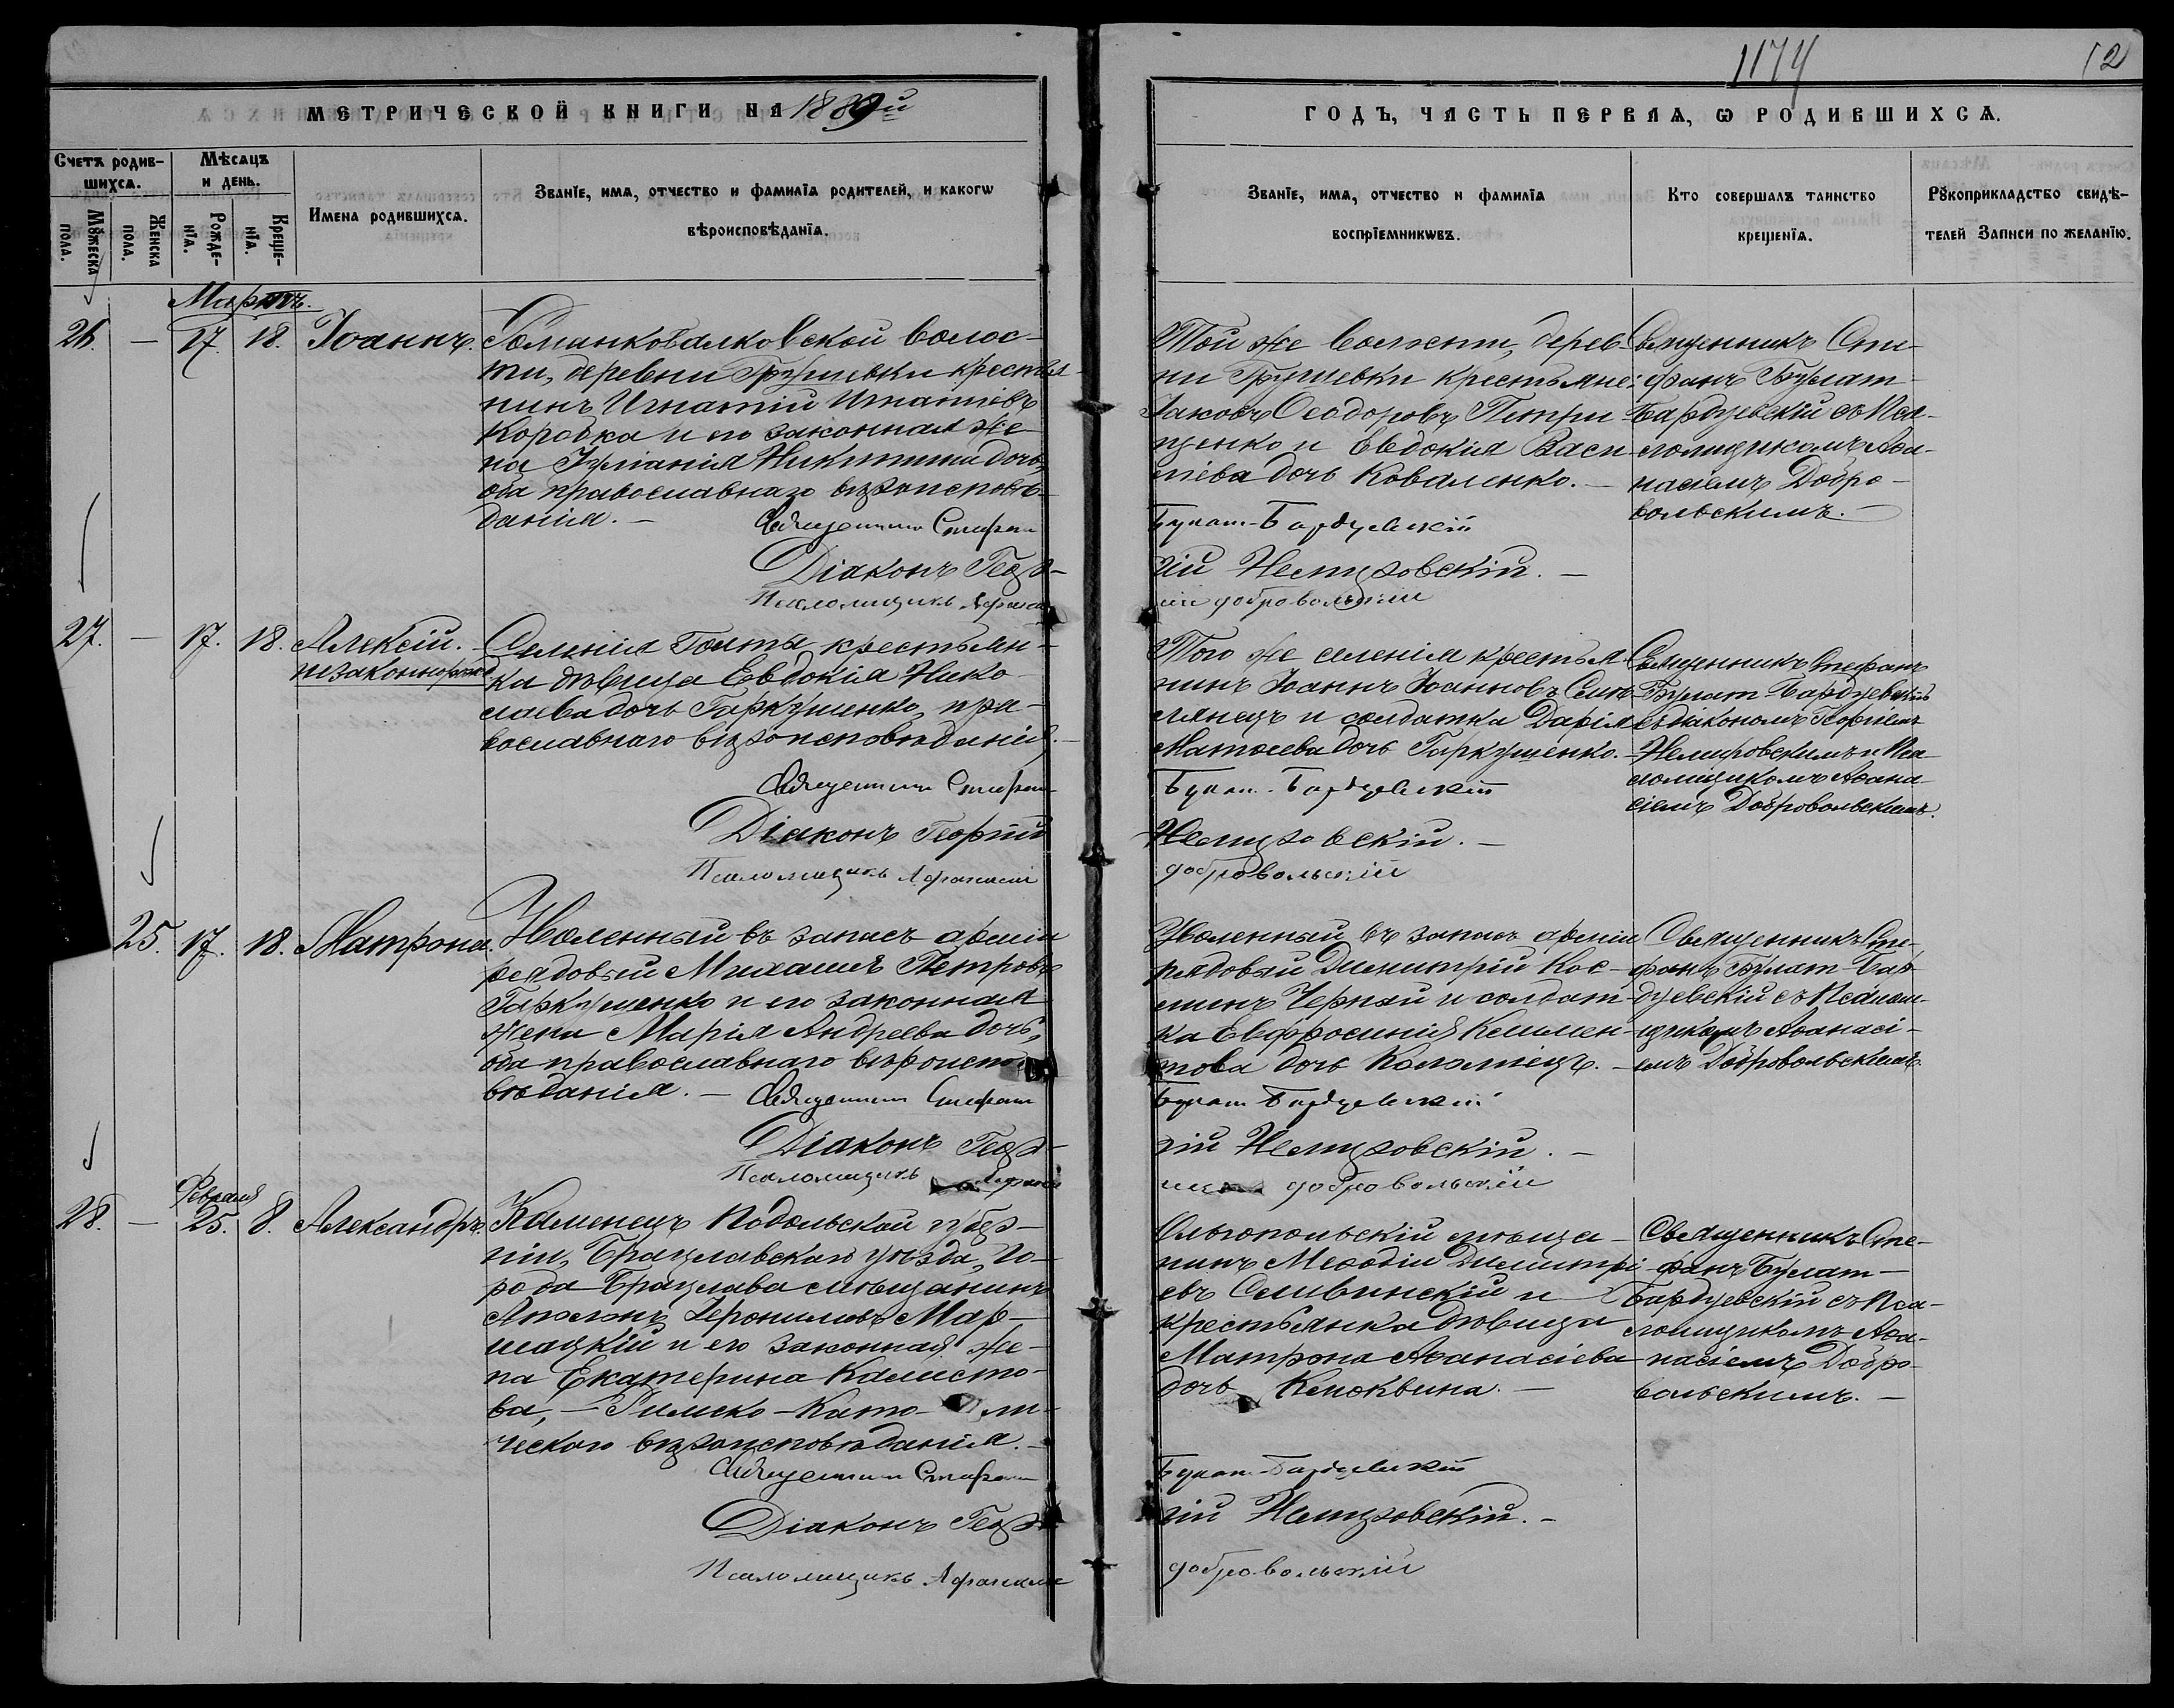 1174
12
МЕТРИЧЕСКОЙ КНИГИ НА 1889й
ГОДЪ, ЧАСТЬ ПЕРВАѦ, Ѡ РОДИВШИХСѦ.
Счетъ родив-
шихсѧ.
Мꙋжеска
пола.
Женска
пола.
Мѣсяцъ
и день.
Рожде-
нїѧ.
Креще-
нїѧ.
Имена родившихсѧ.
Званїе, имѧ, отчество и фамилїѧ родителей, и какогѡ
вѣроисповѣданїѧ.
Званїе, имѧ, отчество и фамилїѧ
воспрїемникѡвъ.
Кто совершалъ таинство
крещенїѧ.
Рꙋкоприкладство свидѣ-
телей записи по желанїю.
Мартъ.
26. — 17. 18. Іоаннъ.
волос-
ти, деревни Грушевки крестья-
нинъ Игнатій Игнатіевъ
Коробка и его законная же-
на Іуліанія Никитина дочь,
оба православнаго вѣроисповѣ-
данія. —
Той же волости, дерев-
ни Грушевки крестьяне:
Іаковъ Ѳеодоровъ Петри-
щенко и Евдокія Васи-
ліева дочь Коваленко. —
Священникъ Сте-
фанъ Булат-
Бардуевскій съ Пса-
ломщикомъ Аѳа-
насіемъ Добро-
вольскимъ. —
Священникъ Стефан Булат-Бардуевскій
Діаконъ Геор-
гій Немировскій. —
Псаломщикъ Афанасій Добровольскій
27. — 17. 18. Алексій.
незаконнорожд.
Селенія Голты крестьян-
ка дѣвица Евдокія Нико-
лаева дочь Гаркушенко, пра-
вославнаго вѣроисповѣданія. —
Того же селенія крестья-
нинъ Іоаннъ Іоанновъ
и солдатка Дарія
Матѳеева дочь Гаркушенко. —
Священникъ Стефанъ
Булат-Бардуевскій
съ діакономъ Георгіемъ
Немировскимъ и Пса-
ломщикомъ Аѳана-
сіемъ Добровольскимъ.
Священникъ Стефан Булат-Бардуевскій
Діаконъ Георгій Немировскій. —
Псаломщикъ Афанасій Добровольскій
25. 17. 18. Матрона.
Уволенный въ запасъ арміи
рядовый Михаилъ Петровъ
Гаркушенко и его законная
жена Марія Андреева дочь,
оба православнаго вѣроиспо-
вѣданія. —
Уволенный въ запасъ арміи
рядовый Димитрій Кос-
минъ Черный и солдат-
ка Евфросинія Климен-
това дочь Коломіецъ. —
Священникъ Сте-
фанъ Булат-Бар-
дуевскій съ Псалом-
щикомъ Аѳанасі-
емъ Добровольскимъ.
Священникъ Стефан Булат-Бардуевскій
Діаконъ Геор-
гій Немировскій. —
Псаломщикъ Добровольскій
Февраля
28. — 25. 8. Александръ.
Каменецъ Подольской губер-
ніи, Брацлавскаго уѣзда, го-
рода Брацлава мѣщанинъ
Іеронимовъ Мар-
шацкій и его законная же-
на Екатерина Калисто-
ва, — Римско-Като-ли-
ческаго вѣроисповѣданія. —
Ольгопольскій мѣща-
нинъ Меѳодій Димитрі-
евъ Сливинскій и
крестьянка дѣвица
Матрона Аѳанасіева
дочь Клюквина. —
Священникъ Сте-
фанъ Булат-
Бардуевскій съ Пса-
ломщикомъ Аѳа-
насіемъ Добро-
вольскимъ. —
Священникъ Стефан Булат-Бардуевскій
Діаконъ Геор-
гій Немировскій. —
Псаломщикъ Афанасій Добровольскій